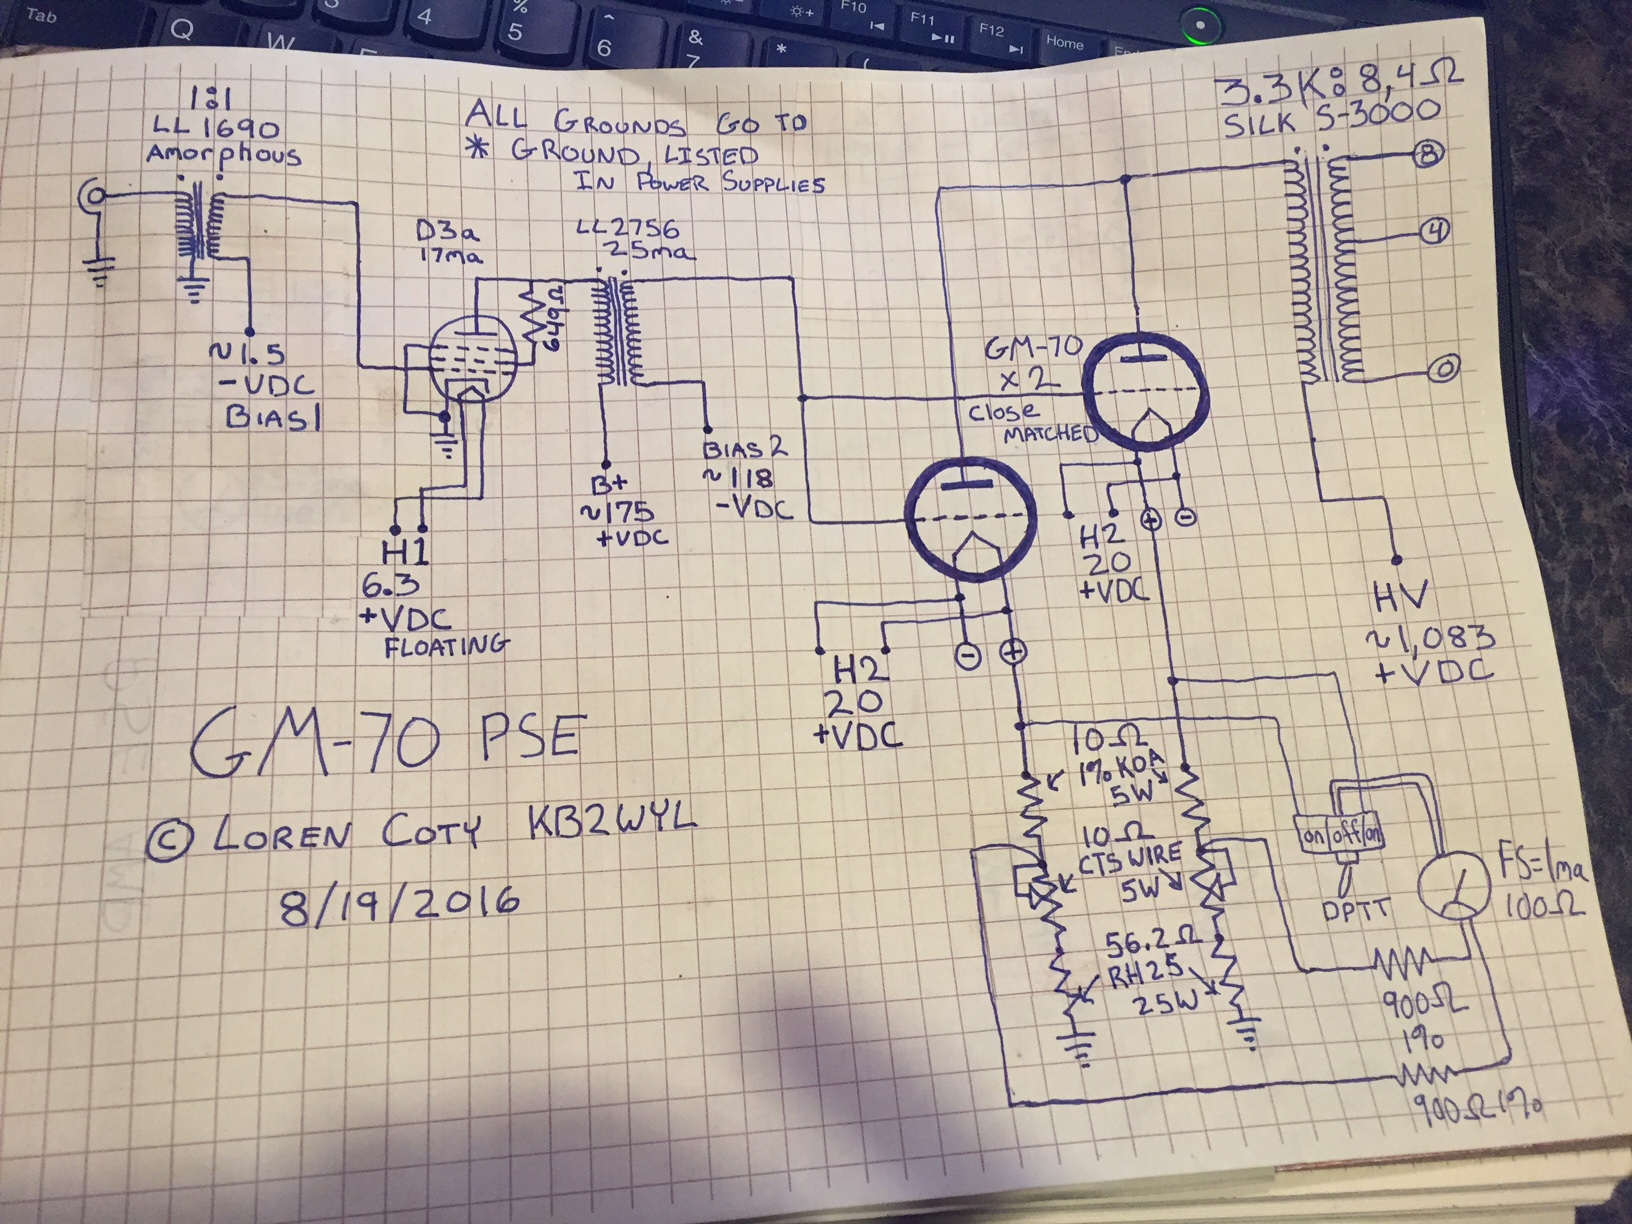 Tab
Q
W
3
4
%
5
^
6
&
7
*
(
F10
F11
F12
Home
1:1
LL1690
Amorphous
ALL GROUNDS GO TO
* GROUND, LISTED
IN POWER SUPPLIES
3.3K: 8,4Ω
SILK S-3000
8
4
0
D3a
17ma
LL2756
25ma
649Ω
~1.5
-VDC
BIAS1
GM-70
x2
Close
MATCHED
BIAS2
~118
-VDC
B+
~175
+VDC
H1
6.3
+VDC
FLOATING
H2
20
+VDC
+
-
H2
20
+VDC
-
+
HV
~1,083
+VDC
GM-70 PSE
© LOREN COTY KB2WYL
8/19/2016
10Ω
1% KOA
5W
10Ω
CTS WIRE
5W
56.2Ω
RH25
25W
on off on
DPTT
FS=1ma
100Ω
900Ω
1%
900Ω 1%